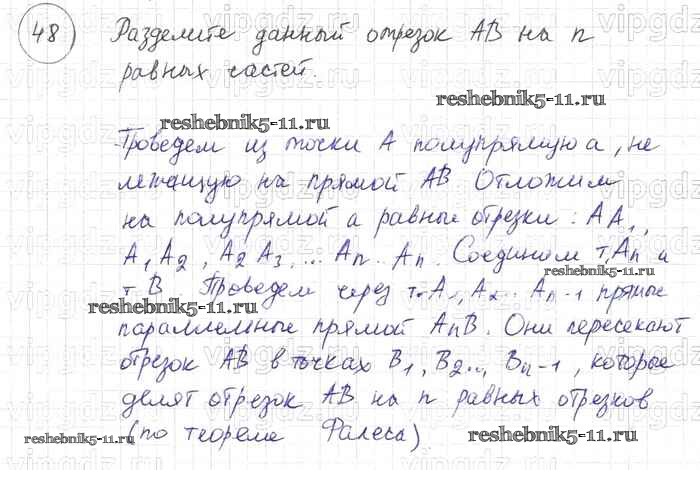 48 Разделите данный отрезок AB на n
равных частей.
reshebnik5-11.ru
reshebnik5-11.ru
Проведем из точки A полупрямую a, не
лежащую на прямой AB Отложим
на полупрямой a равные отрезки: AA₁,
A₁A₂, A₂A₃,... Aₙ.. Aₙ. Соединим т. Aₙ и
reshebnik5-11.ru
т B Проведем через т. A₁, A₂... Aₙ-1 прямые
reshebnik5-11.ru
параллельные прямой AₙB. Они пересекают
отрезок AB в точках B₁, B₂.., Bₙ-1, которые
делят отрезок AB на n равных отрезков
(по теореме Фалеса)
reshebnik5-11.ru
reshebnik5-11.ru